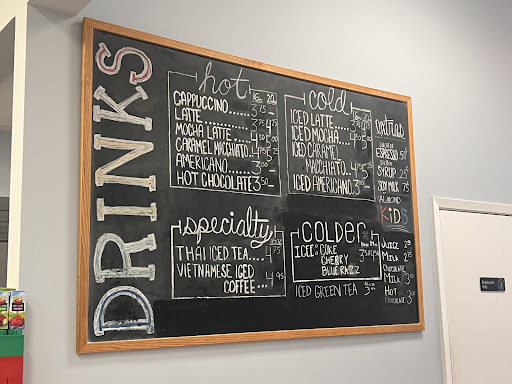 DRINKS
hot
16oz 20oz
CAPPUCCINO...... 3.75 —
LATTE............ 3.75 4.75
MOCHA LATTE.... 4.50 5.00
CARAMEL MACCHIATO. 4.75 5.25
AMERICANO....... 3.00 —
HOT CHOCOLATE 3.50
cold
ICED LATTE.... 3.75
ICED MOCHA... 4.50
ICED CARAMEL
MACCHIATO. 4.75 5.25
ICED AMERICANO. 3.00
extras
SHOT OF
ESPRESSO 50¢
SYRUP 25
SOY MILK 75
ALMOND
KIDS
JUICE 2.00
MILK 2.75
CHOCOLATE
MILK 3.00
HOT
CHOCOLATE 3.00
specialty
THAI ICED TEA.... 4.75
VIETNAMESE ICED
COFFEE... 4.95
COLDER
ICEE: COKE
CHERRY
BLUE RAZZ
3.50 4.50
ICED GREEN TEA 3.00